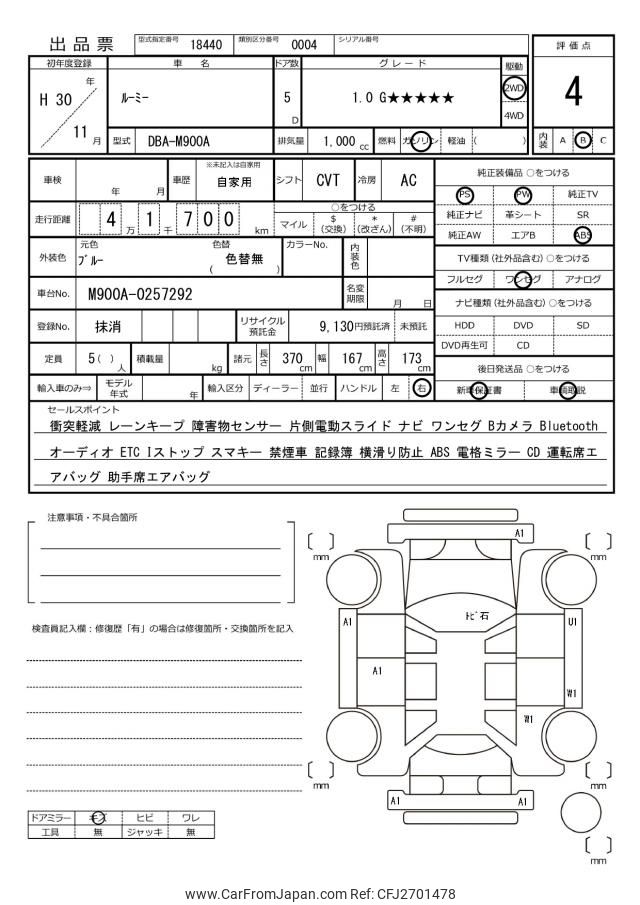 出品票 型式指定番号 18440 類別区分番号 0004 シリアル番号
評価点
4
内装 A B C
初年度登録 車 名 ドア数 グレード 駆動
H 30 年 ルーミー 5 D 1.0 G★★★★★ 2WD
4WD
11 月 型式 DBA-M900A 排気量 1,000 cc 燃料 ガソリン 軽油 ( )
車検 年 月 車歴 ※未記入は自家用 自家用 シフト CVT 冷房 AC
走行距離 4 万 1 千 7 0 0 km ○をつける
マイル $ (交換) * (改ざん) # (不明)
外装色 元色 ブルー 色替 色替無 ( ) カラーNo. 内装色
車台No. M900A-0257292 名変期限 月 日
登録No. 抹消 リサイクル預託金 9,130円預託済 未預託
定員 5( ) 人 積載量 kg 諸元 長さ 370 cm 幅 167 cm 高さ 173 cm
輸入車のみ⇒ モデル年式 年 輸入区分 ディーラー 並行 ハンドル 左 右
純正装備品 ○をつける
PS PW 純正TV
純正ナビ 革シート SR
純正AW エアB ABS
TV種類 (社外品含む) ○をつける
フルセグ ワンセグ アナログ
ナビ種類 (社外品含む) ○をつける
HDD DVD SD
DVD再生可 CD
後日発送品 ○をつける
新車保証書 車輌取説
セールスポイント
衝突軽減 レーンキープ 障害物センサー 片側電動スライド ナビ ワンセグ Bカメラ Bluetooth
オーディオ ETC Iストップ スマキー 禁煙車 記録簿 横滑り防止 ABS 電格ミラー CD 運転席エ
アバッグ 助手席エアバッグ
注意事項・不具合箇所
検査員記入欄：修復歴「有」の場合は修復箇所・交換箇所を記入
ドアミラー キズ ヒビ ワレ
工具 無 ジャッキ 無
A1
mm mm
トビ石
A1 U1
A1
W1
W1
mm mm
A1 A1
mm
www.CarFromJapan.com Ref: CFJ2701478